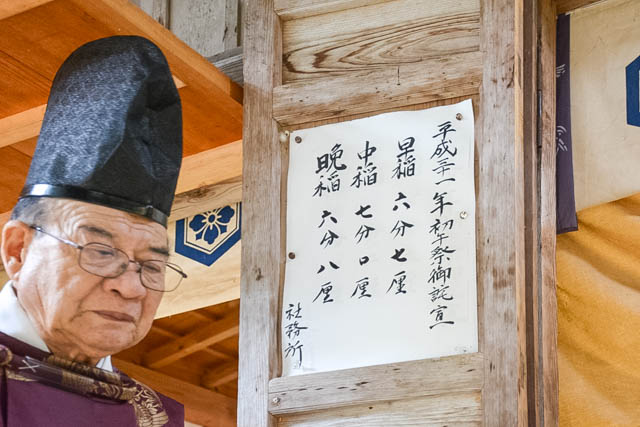 平成三十一年初午祭御詫宣
早稲 六分七厘
中稲 七分口厘
晩稲 六分八厘
社務所